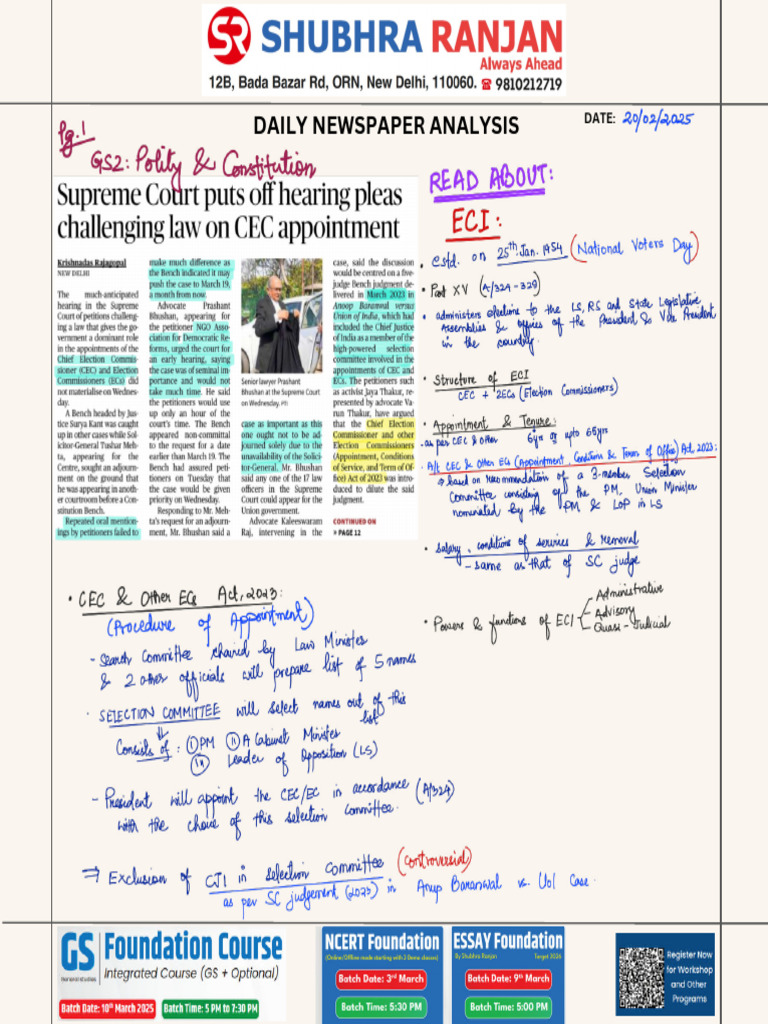 SR SHUBHRA RANJAN
Always Ahead
12B, Bada Bazar Rd, ORN, New Delhi, 110060. ☎ 9810212719
DAILY NEWSPAPER ANALYSIS
DATE: 20/02/2025
Pg.1
GS2: Polity & Constitution
Supreme Court puts off hearing pleas
challenging law on CEC appointment
Krishnadas Rajagopal
NEW DELHI
The much-anticipated
hearing in the Supreme
Court of petitions challeng-
ing a law that gives the go-
vernment a dominant role
in the appointments of the
Chief Election Commis-
sioner (CEC) and Election
Commissioners (ECs) did
not materialise on Wednes-
day.
A Bench headed by Jus-
tice Surya Kant was caught
up in other cases while Sol-
icitor-General Tushar Meh-
ta, appearing for the
Centre, sought an adjourn-
ment on the ground that
he was appearing in anoth-
er courtroom before a Con-
stitution Bench.
Repeated oral mention-
ings by petitioners failed to
make much difference as
the Bench indicated it may
push the case to March 19,
a month from now.
Advocate Prashant
Bhushan, appearing for
the petitioner NGO Asso-
ciation for Democratic Re-
forms, urged the court for
an early hearing, saying
the case was of seminal im-
portance and would not
take much time. He said
the petitioners would use
up only an hour of the
court's time. The Bench
appeared non-committal
to the request for a date
earlier than March 19. The
Bench had assured peti-
tioners on Tuesday that
the case would be given
priority on Wednesday.
Responding to Mr. Meh-
ta's request for an adjourn-
ment, Mr. Bhushan said a
Senior lawyer Prashant
Bhushan at the Supreme Court
on Wednesday. PTI
case as important as this
one ought not to be ad-
journed solely due to the
unavailability of the Solici-
tor-General. Mr. Bhushan
said any one of the 17 law
officers in the Supreme
Court could appear for the
Union government.
Advocate Kaleeswaram
Raj, intervening in the
case, said the discussion
would be centred on a five-
judge Bench judgment de-
livered in March 2023 in
Anoop Baranwal versus
Union of India, which had
included the Chief Justice
of India as a member of the
high-powered selection
committee involved in the
appointments of CEC and
ECs. The petitioners such
as activist Jaya Thakur, re-
presented by advocate Va-
run Thakur, have argued
that the Chief Election
Commissioner and other
Election Commissioners
(Appointment, Conditions
of Service, and Term of Of-
fice) Act of 2023 was intro-
duced to dilute the said
judgment.
CONTINUED ON
» PAGE 12
READ ABOUT:
ECI:
• Estd. on 25th Jan. 1954 (National Voters Day)
• Part XV (A/324-329)
• administers elections to the LS, RS and State Legislative
Assemblies & offices of the President & Vice President
in the country.
• Structure of ECI
CEC + 2ECs (Election Commissioners)
• Appointment & Tenure:
- as per CEC & other 6yrs or upto 65yrs
A/t CEC & Other ECs (Appointment, Conditions & Terms of Office) Act, 2023:
→ based on recommendation of a 3-member Selection
Committee consisting of the PM, Union Minister
nominated by the PM & LoP in LS
• Salary, conditions of services & removal
- same as that of SC judge
• Powers & functions of ECI
- Administrative
- Advisory
- Quasi-Judicial
• CEC & Other ECs Act, 2023:
(Procedure of Appointment)
- Search Committee chaired by Law Minister
& 2 other officials will prepare list of 5 names
• SELECTION COMMITTEE will select names out of this
list
Consists of: (i) PM (ii) A Cabinet Minister
(iii) Leader of Opposition (LS)
- President will appoint the CEC/EC in accordance (A/324)
with the choice of this selection committee.
⇒ Exclusion of CJI in selection committee (controversial)
as per SC judgement (2023) in Anup Baranwal vs. UoI Case.
GS Foundation Course
General Studies
Integrated Course (GS + Optional)
Batch Date: 10th March 2025 Batch Time: 5 PM to 7:30 PM
NCERT Foundation
(Online/Offline mode starting with 3 Demo classes)
Batch Date: 3rd March
Batch Time: 5:30 PM
ESSAY Foundation
By Shubhra Ranjan Target 2026
Batch Date: 9th March
Batch Time: 5:00 PM
Register Now
for Workshop
and Other
Programs